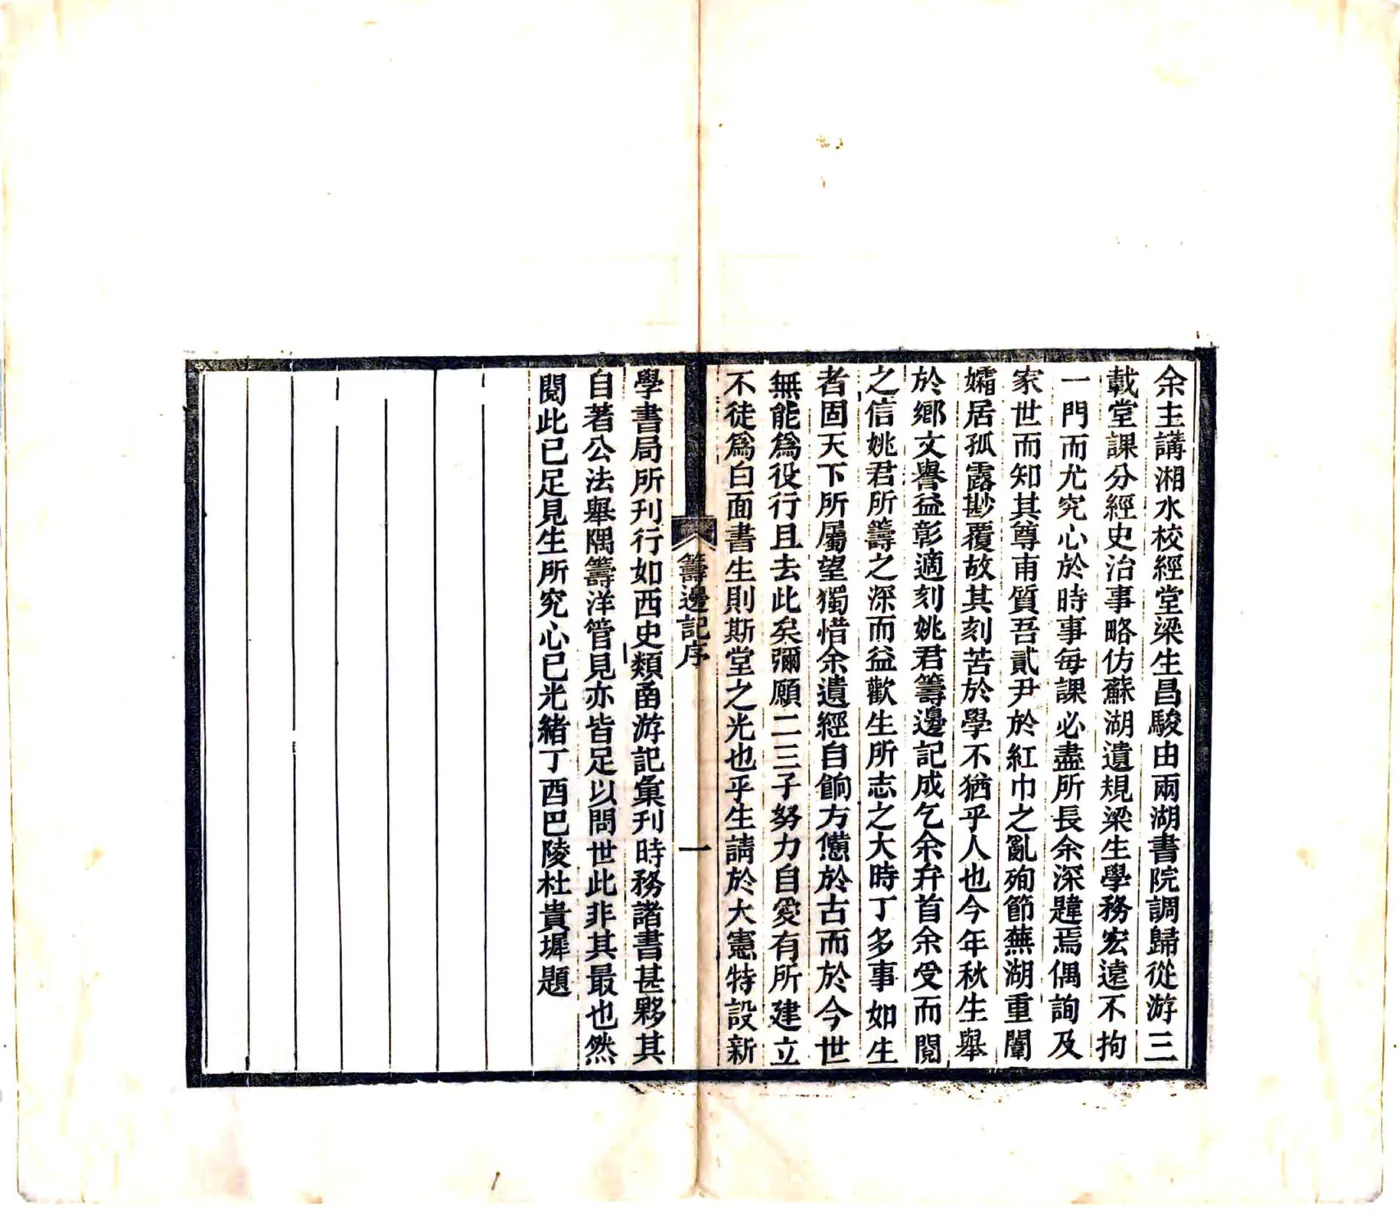 余主講湘水校經堂梁生昌駿由兩湖書院調歸從游三
載堂課分經史治事略仿蘇湖遺規梁生學務宏遠不拘
一門而尤究心於時事每課必盡所長余深韙焉偶詢及
家世而知其尊甫質吾貳尹於紅巾之亂殉節蕪湖重闈
孀居孤露尠覆故其刻苦於學不猶乎人也今年秋生舉
於鄉文譽益彰適刻姚君籌邊記成乞余弁首余受而閱
之信姚君所籌之深而益歎生所志之大時丁多事如生
者固天下所屬望獨惜余遺經自餉方憊於古而於今世
無能爲役行且去此矣彌願二三子努力自愛有所建立
不徒爲白面書生則斯堂之光也乎生請於大憲特設新
籌邊記序
一
學書局所刊行如西史類函游記彙刊時務諸書甚夥其
自著公法舉隅籌洋管見亦皆足以問世此非其最也然
閱此已足見生所究心已光緒丁酉巴陵杜貴墀題